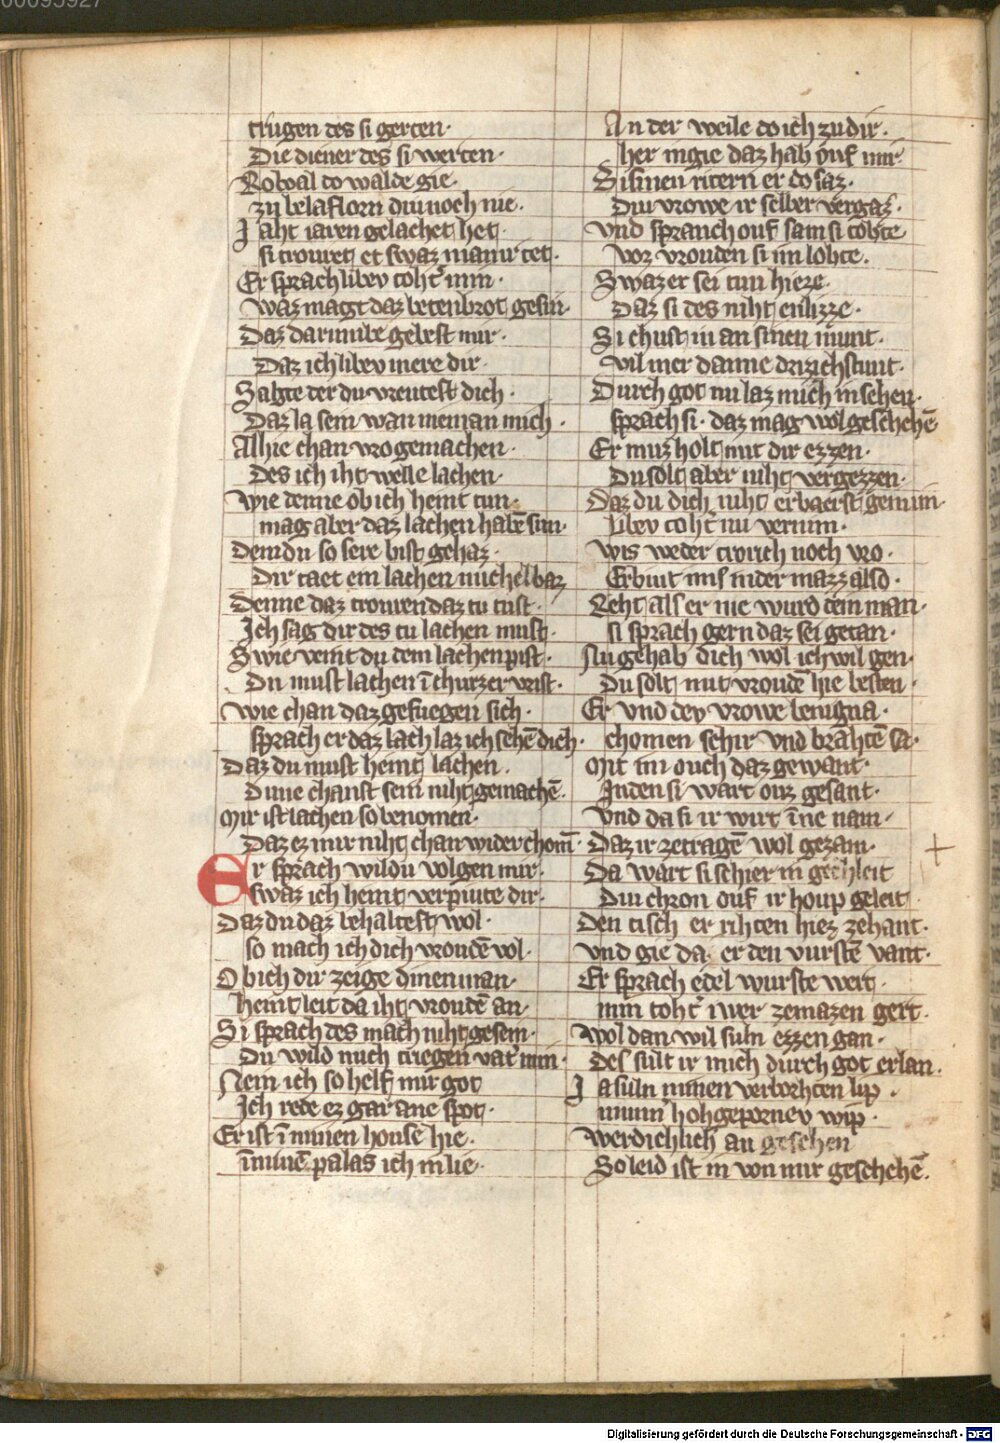 00095927
trugen des si gerten·
Die diener des si werten·
Roboal do walde gie·
zu belaflorn diu noch nie·
J aht iaren gelachet het·
si trouret et swaz man ir tet·
Er sprach libev toht̾ min·
waz magt daz betenbrot gesin·
Daz dar umbe gebest mir·
Daz ich libev mere dir·
Sagte der du vreutest dich·
Daz la sein wan nieman mich·
Alhie chan vro gemachen·
Des ich iht welle lachen·
wie denne ob ich heint tun·
mag aber daz lachen habē sun·
Dem du so sere bist gehaz·
Dir taet ein lachen michel baz
Denne daz trouren daz tu tust·
Ich sag dir des tu lachen must·
Swie veint du dem lachen pist·
Du must lachen ī churzer vrist·
wie chan daz gefuegen sich·
sprach er daz lach laz ich sehē dich·
Daz du must heint lachen·
Dune chanst sein niht gemachē·
Mir ist lachen so benomen·
Daz ez mir niht chan wider chom̄·
Er sprach wildu volgen mir·
swaz ich heint verpiute dir·
Daz du daz behaltest wol·
so mach ich dich vroudē vol·
Ob ich dir zeige dinen man·
heint leit da iht vroudē an·
Si sprach des mach niht gesein·
Du wild mich triegen vat̾ min·
Nein ich so helf mir got
Ich rede ez gar ane spot·
Er ist ī minen house hie·
ī minē palas ich in lie·
An der weile do ich zu dir·
her in gie daz hab ouf mir
Si sinen ritern er do saz·
Diu vrowe ir selber vergaz·
vnd spranch ouf sam si tobte
vor vrouden si im lobte·
Swaz er sei tun hieze·
Daz si des niht enlizze·
Si chust in an sinen munt·
vil mer danne drizichstunt·
Durch got nu laz mich in sehen·
sprach si· daz mag wol geschehē
Er muz holt mit dir ezzen·
Du solt aber niht vergezzen·
Daz du dich niht erbaerst gen im·
libev toht̾ nu vernim·
wis weder trourich noch vro·
Erbiut ims in der mazz also·
Reht als er nie wurd dein man·
si sprach gern daz sei getan·
Nu gehab dich wol ich wil gen·
Du solt mit vroudē hie besten·
Er vnd dev vrowe benigna·
chomen schir vnd brahtē sa·
Mit im ouch daz gewant·
Jnden si wart ouz gesant·
vnd da si ir wirt īne nam·
Daz ir zetragē wol gezam·
Da wart si schier in gechleit
Diu chron ouf ir houp geleit·
Den tisch er rihten hiez zehant·
vnd gie da er den vurstē vant·
Er sprach edel vurste wert·
min toht̾ iwer zemazen gert·
wol dan wil suln ezzen gan·
des sult ir mich durch got erlan·
J a suln minen verworhten lip·
minn̾ hohgepornev wip·
werdichlich an gesehen
So leid ist in von mir geschehē·
Digitalisierung gefördert durch die Deutsche Forschungsgemeinschaft - DFG